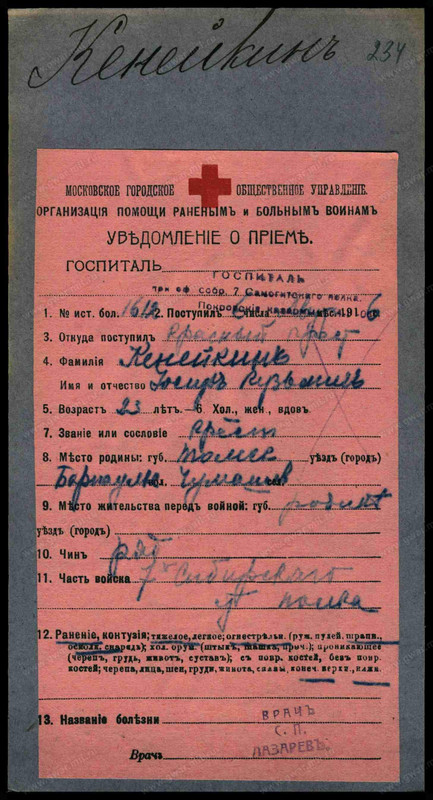 Кенейкинъ 234
МОСКОВСКОЕ ГОРОДСКОЕ ОБЩЕСТВЕННОЕ УПРАВЛЕНІЕ.
ОРГАНИЗАЦІЯ ПОМОЩИ РАНЕНЫМЪ и БОЛЬНЫМЪ ВОИНАМЪ
УВѢДОМЛЕНІЕ О ПРІЕМѢ.
ГОСПИТАЛЬ
ГОСПИТАЛЬ
при оф. Собр. 7. Самогитскаго полка.
Покровскія казармы
1. № ист. бол. 1612 2. Поступилъ 6 числа мѣс. 1916
3. Откуда поступилъ Красный Крест
4. Фамилія Кенейкинъ
Имя и отчество Кузьмичъ
5. Возрастъ 23 лѣтъ 6. Хол., жен., вдовъ.
7. Званіе или сословіе крест
8. Мѣсто родины: губ. Томск уѣздъ (городъ)
Барнаулъ вол. сел.
9. Мѣсто жительства передъ войной: губ. родинѣ
уѣздъ (городъ)
10. Чинъ ряд
11. Часть войска 7 Сибирскаго
полка
12. Раненіе, контузія; тяжелое, легкое; огнестрѣльн. (руж. пулей, шрапн.,
осколк. снаряд); хол. оруж. (штыкъ, шашка, проч.); проникающее
(черепъ, грудь, животъ, суставъ); съ повр. костей, безъ повр.
костей; черепа, лица, шеи, груди, живота, спины, конеч. верхн., нижн.
13. Названіе болѣзни
ВРАЧЪ
С. П.
ЛАЗАРЕВЪ.
Врачъ